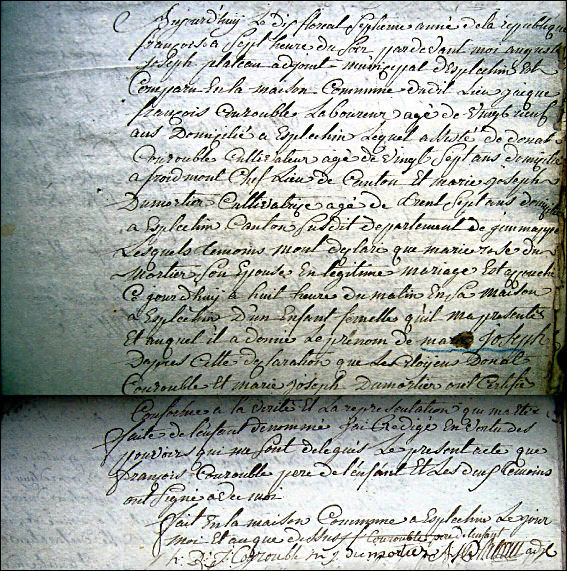 Aujourd'huy Le dix floreal Septieme année de la republique
françoise a Sept heure du Soir pardevant moi auguste
joseph plateau adjoint municipal d'Esplechin Est
Comparu En la maison Commune dudit Lieu jacque
françois Courouble Laboureur agé de vingt neuf
ans Domicilié a Esplechin Lequel assisté de donat
Courouble Cultivateur agé de vingt Sept ans domicilié
a froidmont Chef Lieu de Canton Et marie joseph
Dumortier Cultivatrice agé de trent Sept ans domicilié
a Esplechin Canton Susdit departement de gemmappe
Lesquels temoins m'ont declaré que marie rose du
Mortier Son Epouse En legitime mariage Est accouché
Ce jourdhuy a huit heure du matin En Sa maison
a Esplechin D'un Enfant femelle qu'il ma presenté
Et auquel il a donné Le prenom de marie joseph
Dapres Cette declaration que Les Citoyens Donat
Courouble Et marie joseph Dumortier ont Certifié
Conforme a la verité Et La representation qui m'a été
faite de l'enfant denommé j'ai Redigé En vertu des
pouvoirs qui me sont delegués Le present acte que
françois Courouble pere de l'enfant Et Les deux temoins
ont Signé avec moi
fait En la maison Commune a Esplechin Le jour
moi Et an que dessus Courouble pere de l'enfant
D: J: Courouble m j dumortier